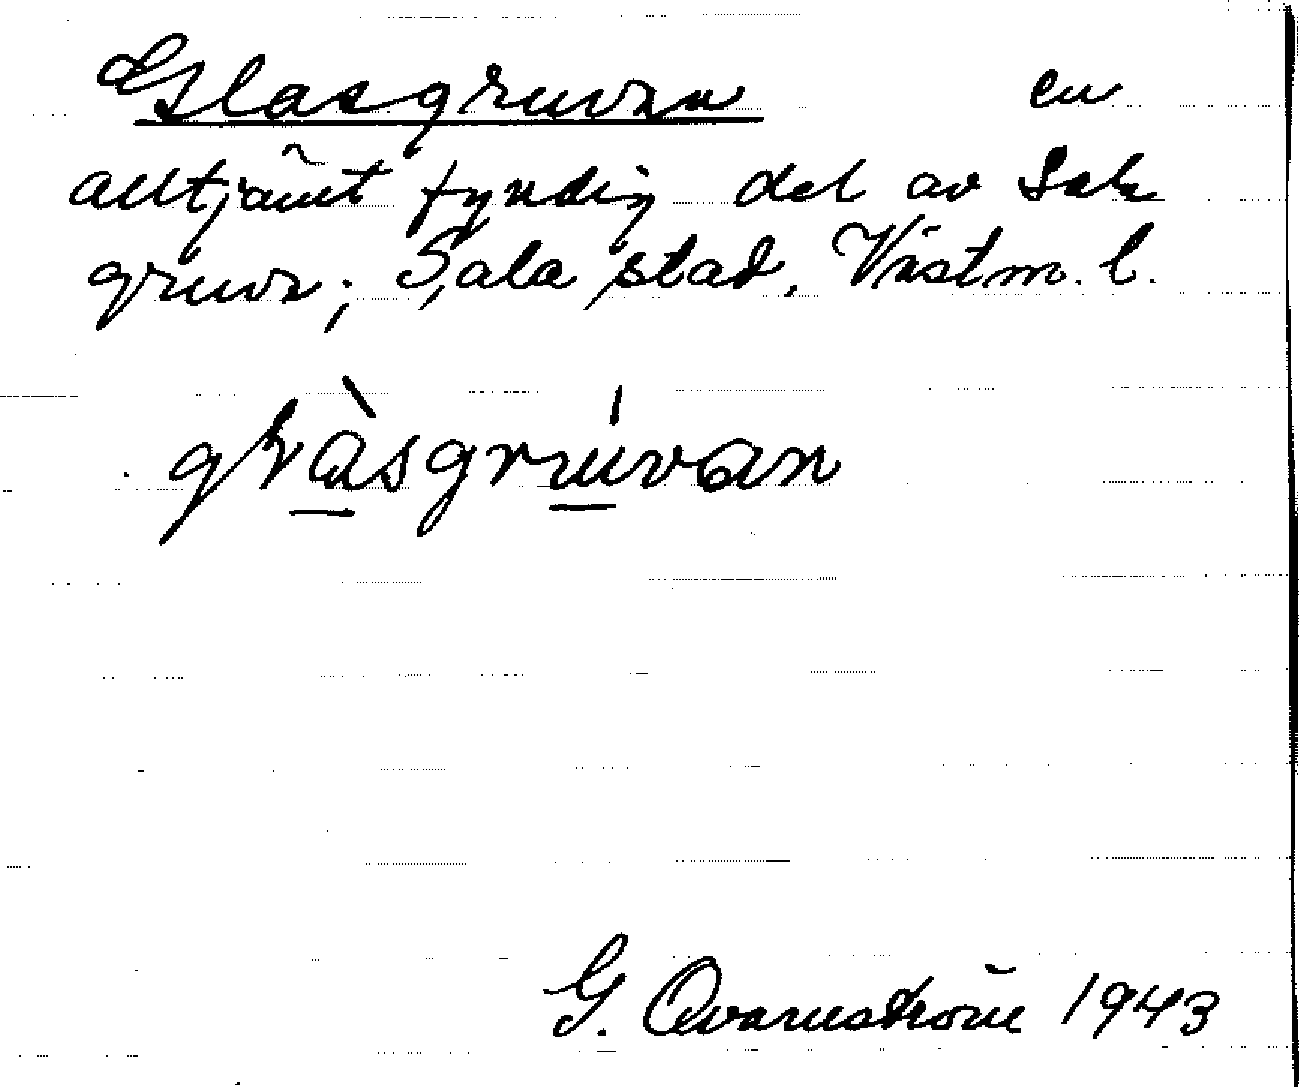 Glasgruvan en
alltjämt fyndig del av Sala
gruva; Sala stad, Västm. l.
glàsgrúvan
G. Qvarnström 1943